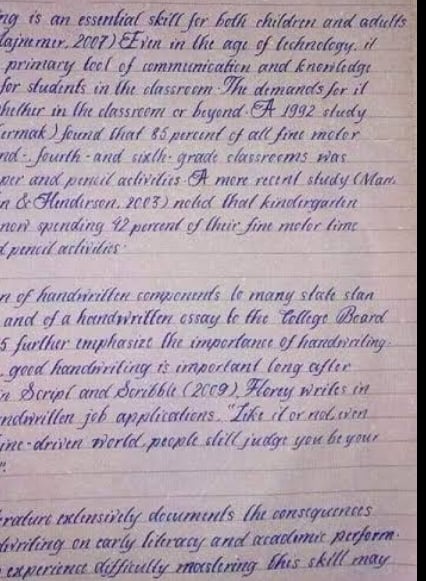 ng is an essential skill for both children and adults
ajnerner, 2007) Even in the age of technology, it
primary tool of communication and knowledge
for students in the classroom. The demands for it
hether in the classroom or beyond. A 1992 study
ermak) found that 85 percent of all fine motor
nd-, fourth- and sixth- grade classrooms was
per and pencil activities. A more recent study (Marr,
n & Henderson, 2003) noted that kindergarten
now spending 42 percent of their fine motor time
d pencil activities.
n of handwritten components to many state stan
and of a handwritten essay to the College Board
5 further emphasize the importance of handwriting.
, good handwriting is important long after
n Script and Scribble (2009), Florey writes in
ndwritten job applications, "Like it or not, even
ine-driven world, people still judge you be your
".
erature extensively documents the consequences
dwriting on early literacy and academic perform-
experience difficulty mastering this skill may